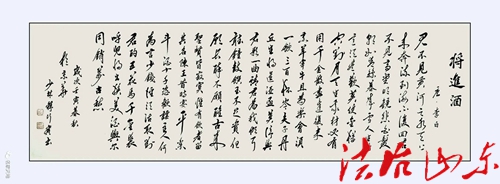 将進酒
唐·李白
君不见黄河之水天上
来奔流到海不復回君
不见高堂明镜悲白髮
朝如青丝暮成雪人生
得意须尽欢莫使金樽
空对月天生我材必有
用千金散尽還復来
烹羊宰牛且为樂会须
一飲三百杯岑夫子丹
丘生将進酒杯莫停與
君歌一曲請君为我傾耳
聽鐘鼓饌玉不足貴但
願長醉不願醒古来
聖賢皆寂寞惟有飲者留
其名陳王昔時宴平樂
斗酒十千恣歡謔主人何
为言少錢徑須沽取對
君酌五花馬千金裘
呼兒将出换美酒與尔
同銷萬古愁
於京華
少林釋行
法治山东